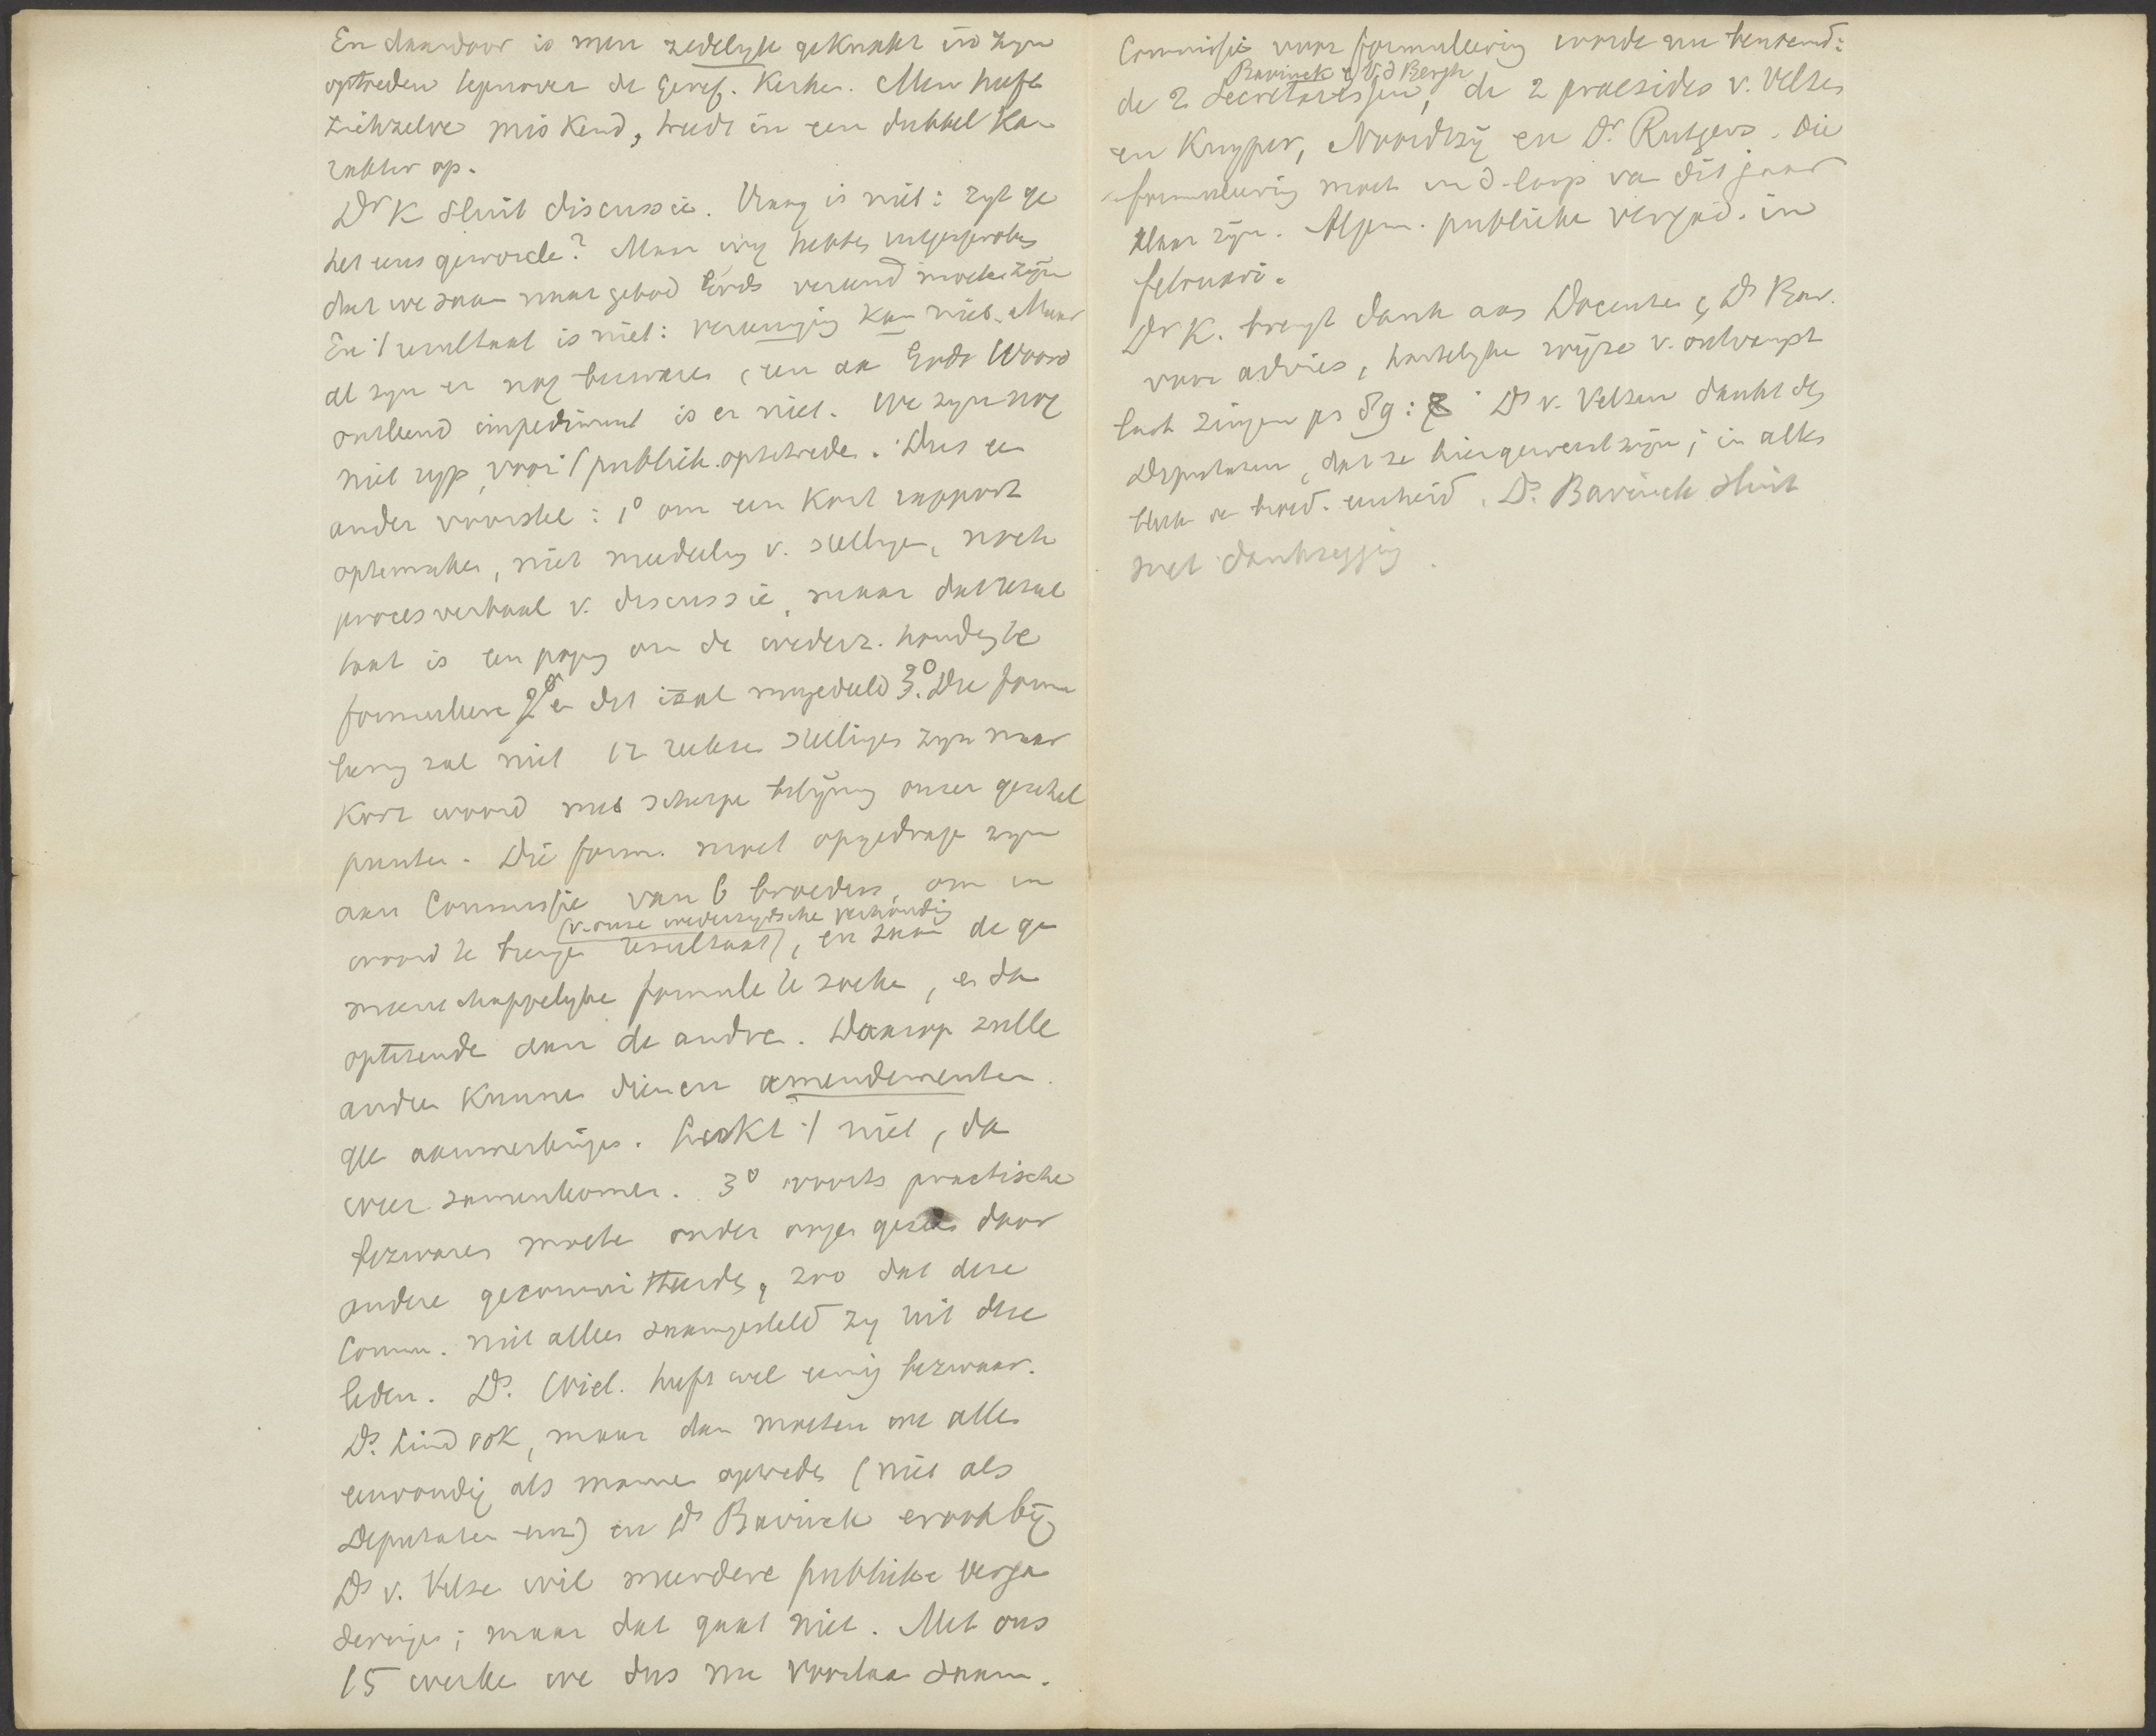 En daardoor is men zedelyk geknakt in zyn
optreden tegenover de Geref. Kerken. Men heeft
zichzelve miskend, treedt in een dubbel ka-
rakter op.
Dr K sluit discussie. Vraag is niet: zyt ge
het eens geworde? Maar wy hebben uitgesproken
dat we saam naar gebod Gods vereend moeten zyn
En 't resultaat is niet: vereeniging kan niet. Maar
al zyn er nog bezwaren, een aan Gods Woord
ontleend impediment is er niet. We zyn nog
niet ryp, voor 't publiek optetrede. Dus een
ander voorstel: 1° om een kort rapport
optemaken, niet mededeling v. stellingen, noch
procesverbaal v. discussie, maar dat resul
taat is een poging om de wederz. houding te
formuleere 2° en dit is al meegedeeld 3° Die formu
leering zal niet 12 reeksen stellingen zyn maar
kort woord met scherpe belijning onzer geschil
punten. Die form. moet opgedrage zyn
aan Commissie van 6 broeders, om in
(v. onze wederzydsche verhouding
woord te brengen resultaat), en saam de ge
meenschappelyke formule te zoeke, en dan
optezende aan de andre. Daarop zulle
andre kunnen dienen amendementen
en aanmerkinges. Lukt 't niet, dan
weer samenkomen. 3° voorts practische
bezwaren moete onder oogen gezien door
andere gecommitteerdes, zoo dat deze
Comm. niet alleen saamgesteld zy uit deze
leden. Ds. Wiel. heeft wel eenig bezwaar.
Ds. Lind ook, maar dan moeten we alle
eenvoudig als manne optreden (niet als
Deputaten enz) en Ds Bavinck er ook by
Ds v. Velze wil meerdere publieke verga
deringes; maar dat gaat niet. Met ons
15 werke we dus nu voortaan saam.
Commissie voor formuleering worde nu benoemd:
Bavinck & V.d Bergh
de 2 Secretarissen, de 2 praesides v. Velzen
en Kuyper, Noordtzij en Dr. Rutgers. Die
formuleering moet in d. loop van dit jaar
klaar zyn. Algem. publieke vergad. in
februari.
Dr K. brengt dank aan Docenten & Ds Bav.
voor advies, hartelyke wyze v. ontvangst
laat zingen ps 89: Ds v. Velzen dankt de
Deputaten, dat ze hier geweest zyn; in alles
bleek de broed. eenheid. Ds. Bavinck sluit
met dankzegging.